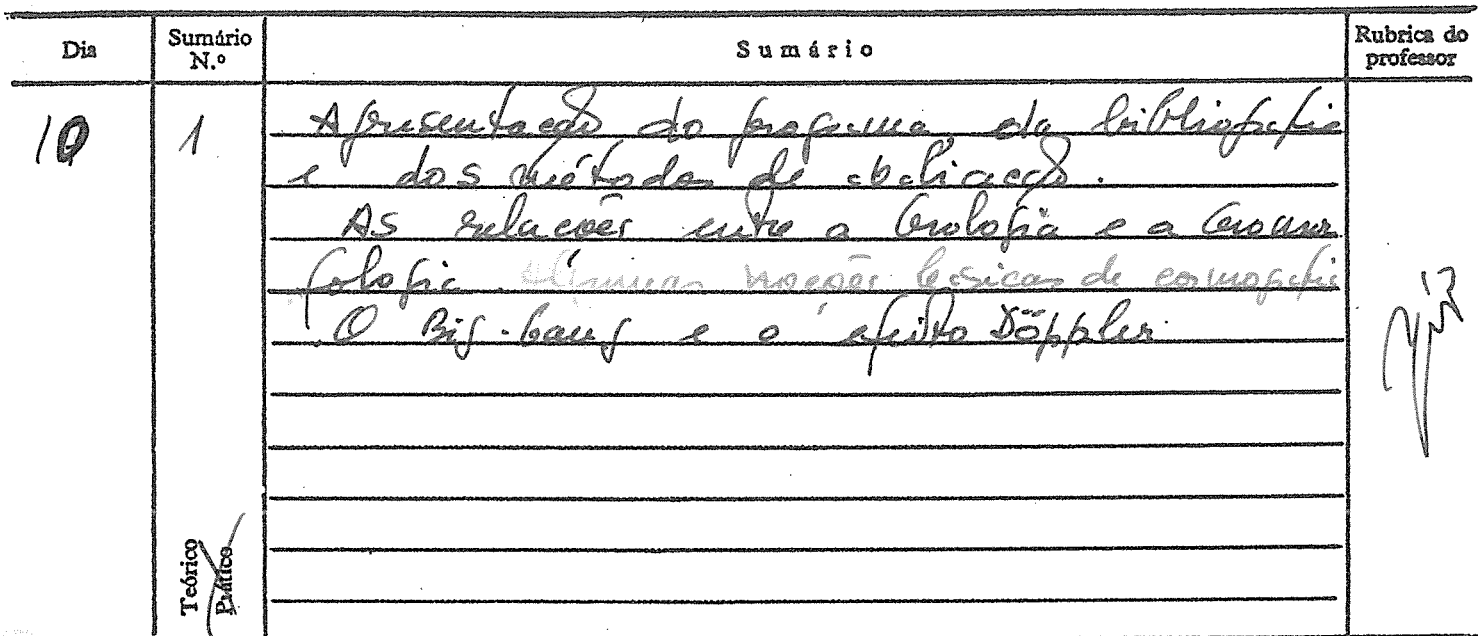 Dia
Sumário N.º
Sumário
Rubrica do professor
10
1
Apresentação do programa, da bibliografia
e dos métodos de avaliação.
As relações entre a Geologia e a Geomor
fologia. Algumas noções básicas de cosmografia
O Big-bang e o efeito Döppler.
Teórico
Prático